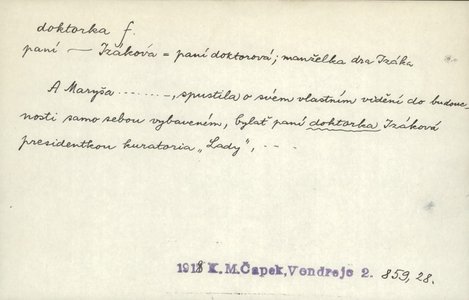 doktorka f.
paní — Izáková = paní doktorová; manželka dra Izáka
A Maryša . . . . . . . . –, spustila o svém vlastním vidění do budouc-
nosti samo sebou vybaveném, bylať paní doktorka Izáková
presidentkou kuratoria „Lady", . – –
1918 K. M. Čapek, Vendrejc 2. 859, 28.